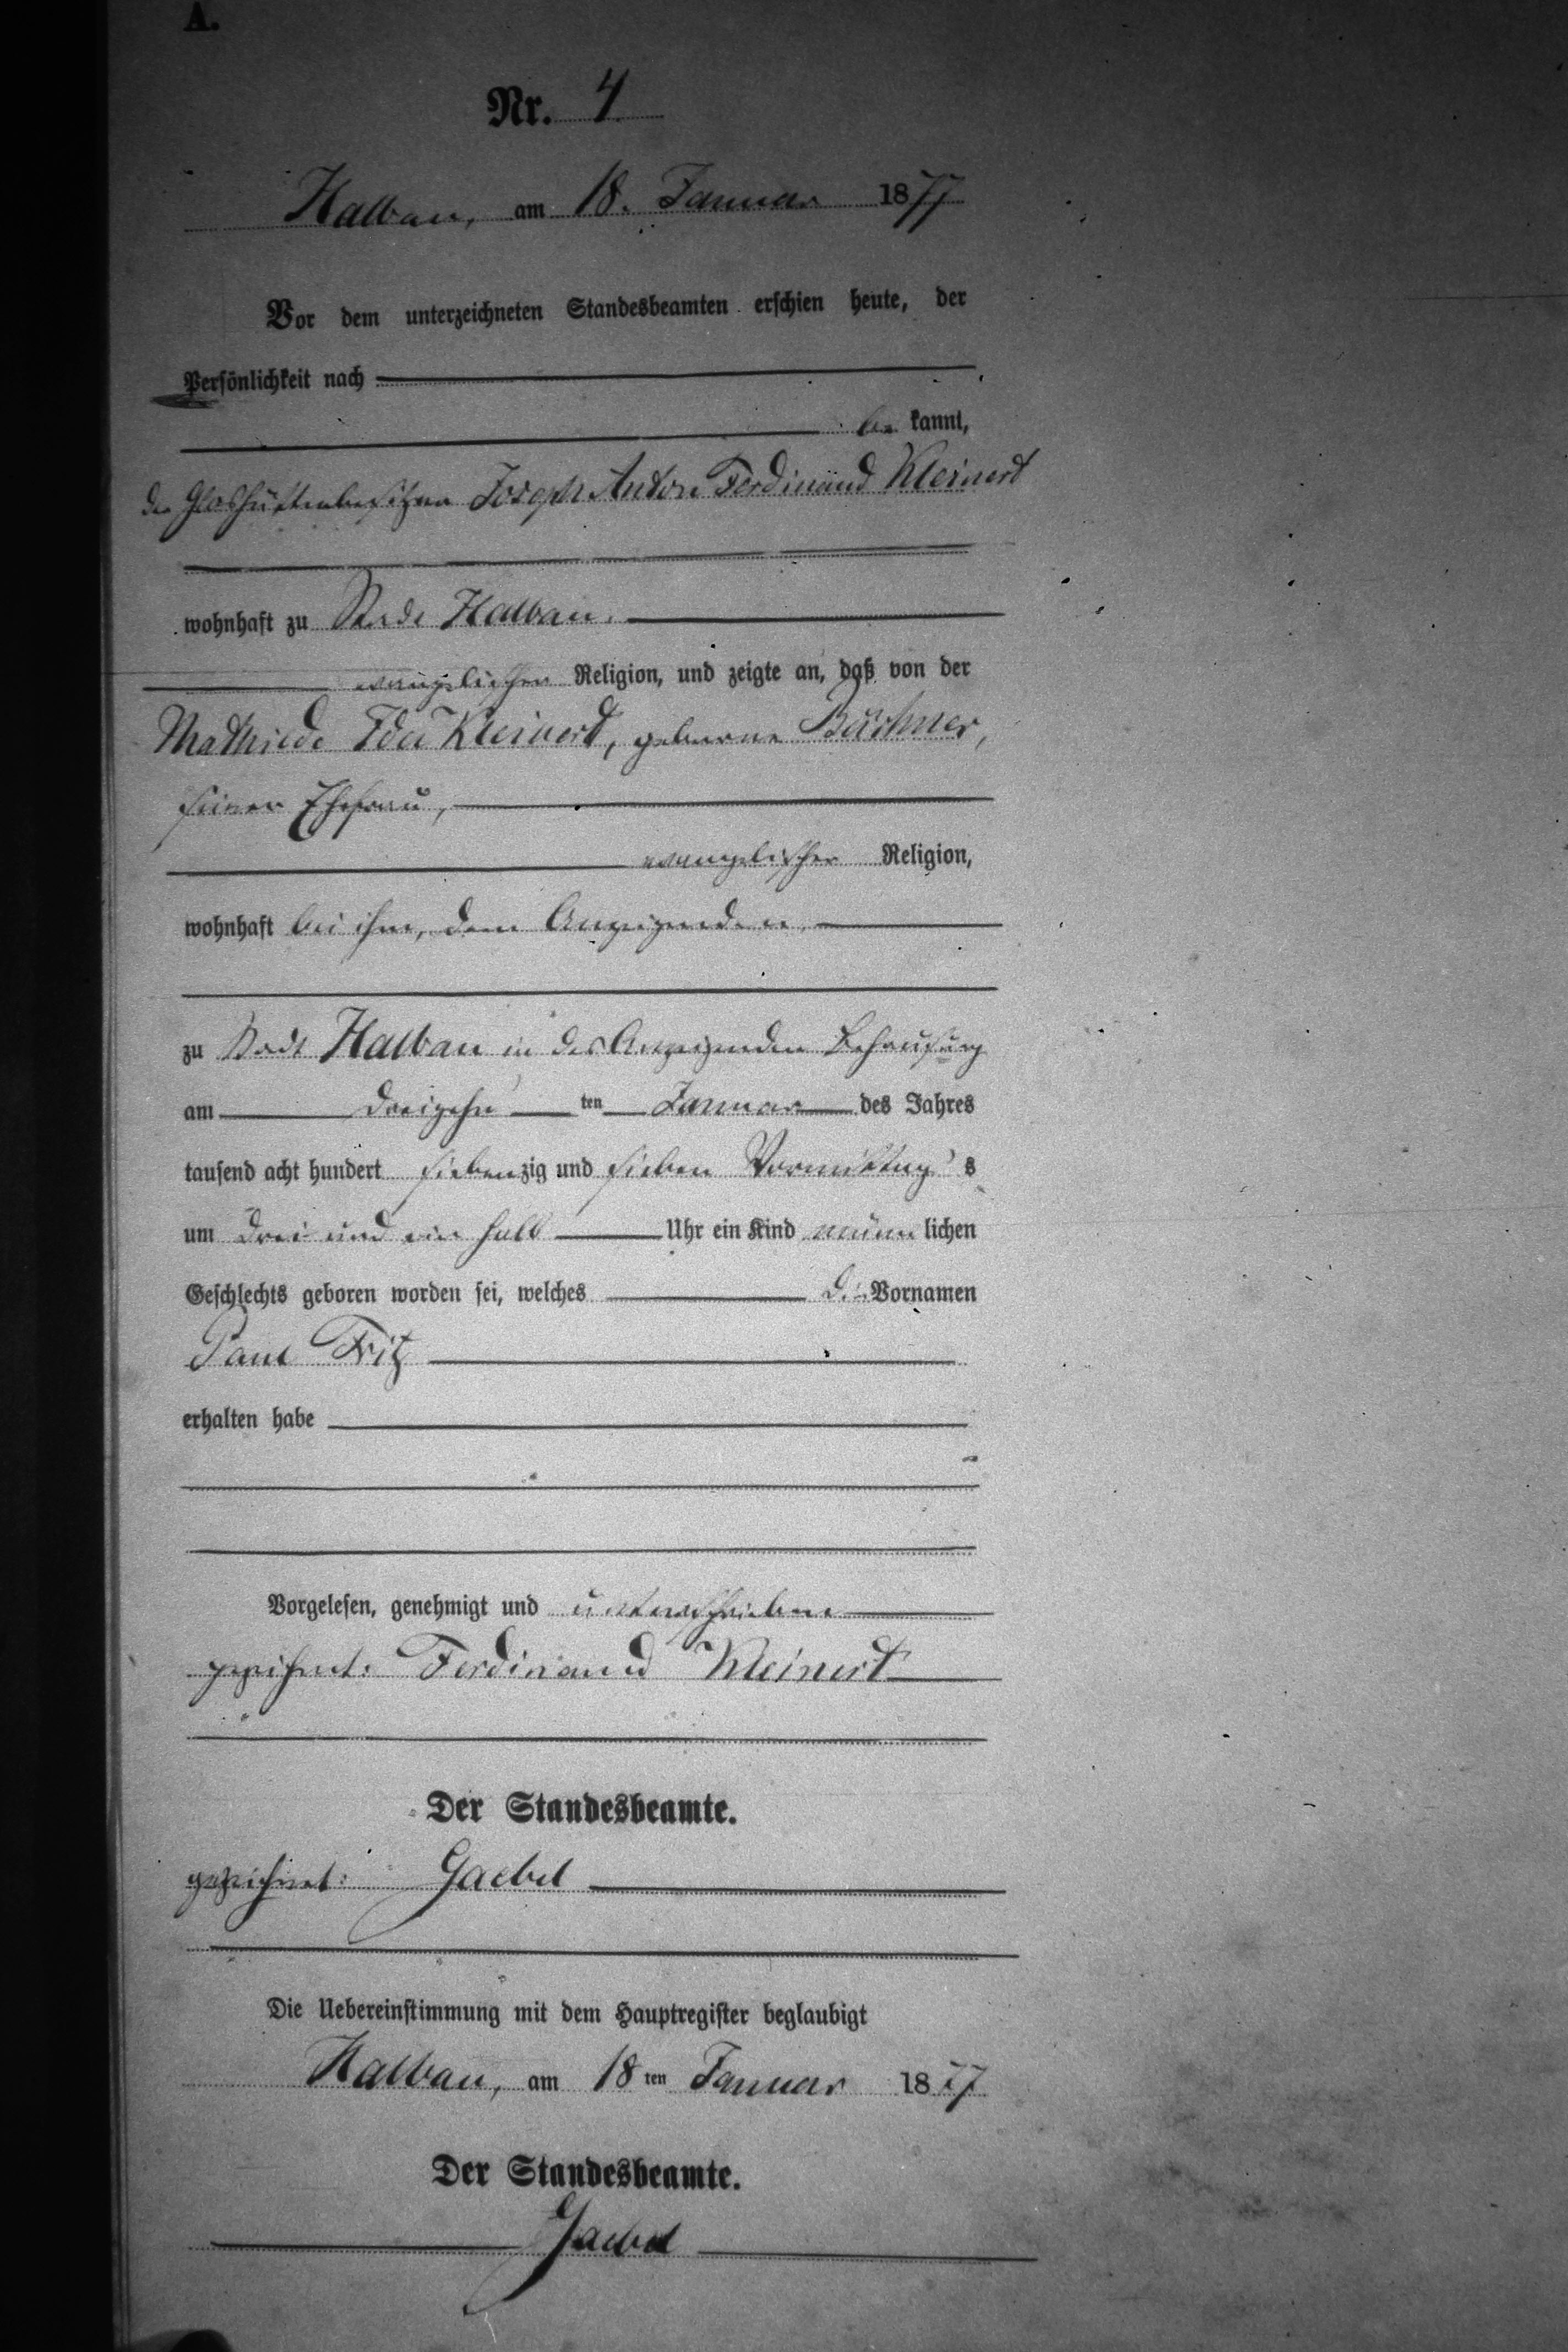 A.
Nr. 4
Halbau, am 18. Januar 1877
Vor dem unterzeichneten Standesbeamten erschien heute, der
Persönlichkeit nach
be kannt,
der Glashüttenbesitzer Joseph Anton Ferdinand Kleinert
wohnhaft zu Stadt Halbau.
evangelischer Religion, und zeigte an, daß von der
Mathilde Ida Kleinert, geborne Büchner,
seiner Ehefrau,
evangelischer Religion,
wohnhaft bei ihm, dem Anzeigenden
zu Stadt Halbau in des Anzeigenden Behausung
am dreizehn ten Januar des Jahres
tausend acht hundert siebenzig und sieben Vormittag s
um drei und ein halb Uhr ein Kind männ lichen
Geschlechts geboren worden sei, welches die Vornamen
Paul Fritz
erhalten habe
Vorgelesen, genehmigt und unterschrieben
gezeichnet: Ferdinand Kleinert
Der Standesbeamte.
gezeichnet: Gaebel
Die Uebereinstimmung mit dem Hauptregister beglaubigt
Halbau, am 18 ten Januar 1877
Der Standesbeamte.
Gaebel